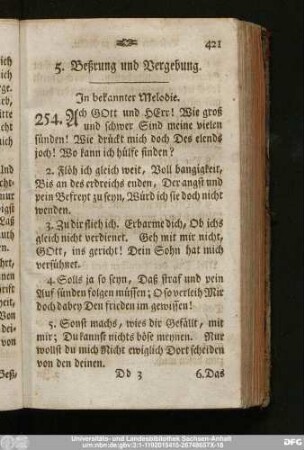 421
5. Beßrung und Vergebung.
In bekannter Melodie.
254. Ach GOtt und HErr! Wie groß
und schwer Sind meine vielen
sünden! Wie drückt mich doch Des elends
joch! Wo kann ich hülfe finden?
2. Flöh ich gleich weit, Voll bangigkeit,
Bis an des erdreichs enden, Der angst und
pein Befreyt zu seyn, Würd ich sie doch nicht
wenden.
3. Zu dir flieh ich. Erbarme dich, Ob ichs
gleich nicht verdienet. Geh mit mir nicht,
GOtt, ins gericht! Dein Sohn hat mich
versühnet.
4. Solls ja so seyn, Daß straf und pein
Auf sünden folgen müssen; O so verleih Mir
doch dabey Den frieden im gewissen!
5. Sonst machs, wies dir Gefällt, mit
mir; Du kannst nichts böse meynen. Nur
wollst du mich Nicht ewiglich Dort scheiden
von den deinen.
Dd 3 6. Das
Universitäts- und Landesbibliothek Sachsen-Anhalt
DFG